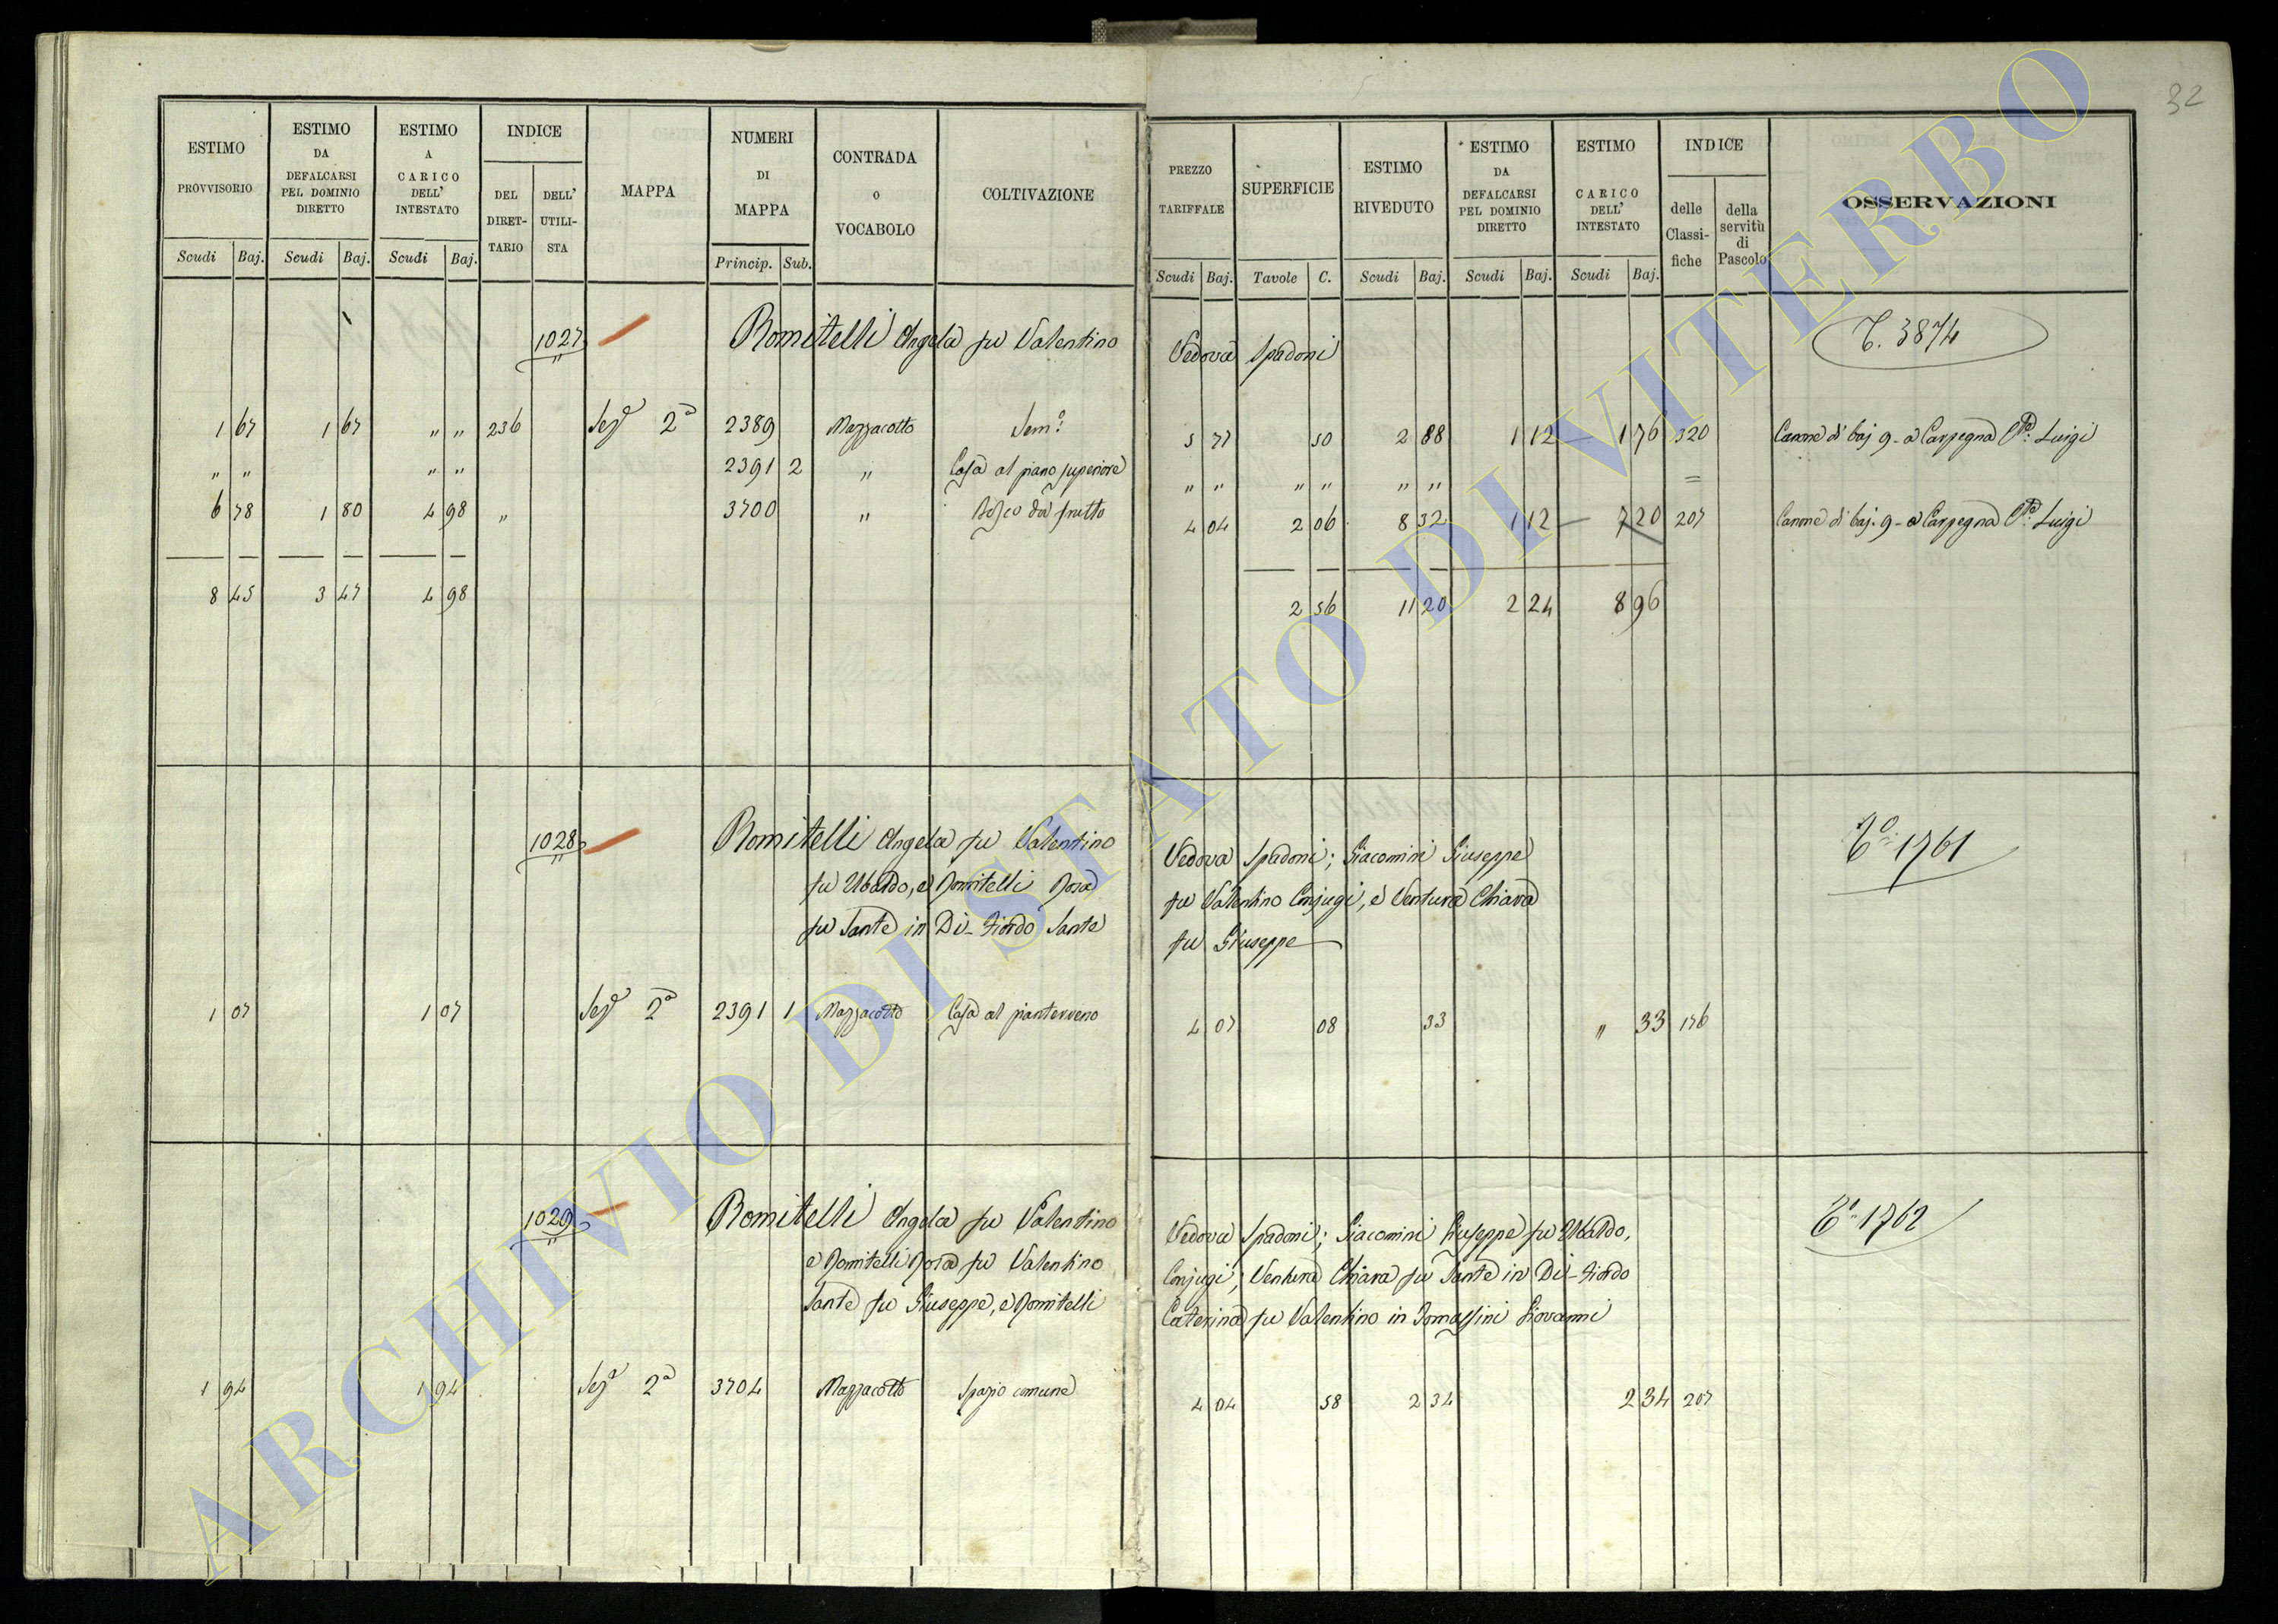 32
ESTIMO PROVVISORIO
ESTIMO DA DEFALCARSI PEL DOMINIO DIRETTO
ESTIMO A CARICO DELL' INTESTATO
INDICE
DEL DIRET-TARIO
DELL' UTILI-STA
MAPPA
NUMERI DI MAPPA
CONTRADA o VOCABOLO
COLTIVAZIONE
PREZZO TARIFFALE
SUPERFICIE
ESTIMO RIVEDUTO
ESTIMO DA DEFALCARSI PEL DOMINIO DIRETTO
ESTIMO CARICO DELL' INTESTATO
INDICE
delle Classi-fiche
della servitù di Pascolo
OSSERVAZIONI
Scudi Baj. Scudi Baj. Scudi Baj. Princip. Sub. Scudi Baj. Tavole C. Scudi Baj. Scudi Baj. Scudi Baj.
1027 Romitelli Angela fu Valentino Vedova Spadoni T. 3874
1 67 1 67 " " 236 Sez.e 2a 2389 Mazzacotto Sem.o 5 77 50 2 88 1 12 — 1 76 320 Canone di baj. 9 - a Carpegna Luigi
" " " " 2391 2 " Casa al piano superiore " " " " " " =
6 78 1 80 4 98 " 3700 " Bosco da frutto 4 04 2 06 8 32 1 12 — 7 20 207 Canone di baj. 9 - a Carpegna Luigi
8 45 3 47 4 98 2 56 11 20 2 24 8 96
1028 Romitelli Angela fu Valentino Vedova Spadoni; Giacomini Giuseppe To. 1761
fu Ubaldo, e Romitelli Rosa fu Valentino Conjugi, e Ventura Chiara
fu Sante in Di-Fiordo Sante fu Giuseppe
1 07 1 07 Sez.e 2a 2391 1 Mazzacotto Casa al pianterreno 4 07 08 33 " 33 176
1029 Romitelli Angela fu Valentino Vedova Spadoni; Giacomini Giuseppe fu Ubaldo, To. 1762
e Romitelli Rosa fu Valentino Conjugi; Ventura Chiara fu Sante in Di-Fiordo
Sante fu Giuseppe, e Romitelli Caterina fu Valentino in Tomassini Giovanni
1 94 1 94 Sez.e 2a 3704 Mazzacotto Spazio comune 4 04 58 2 34 2 34 207
ARCHIVIO DI STATO DI VITERBO